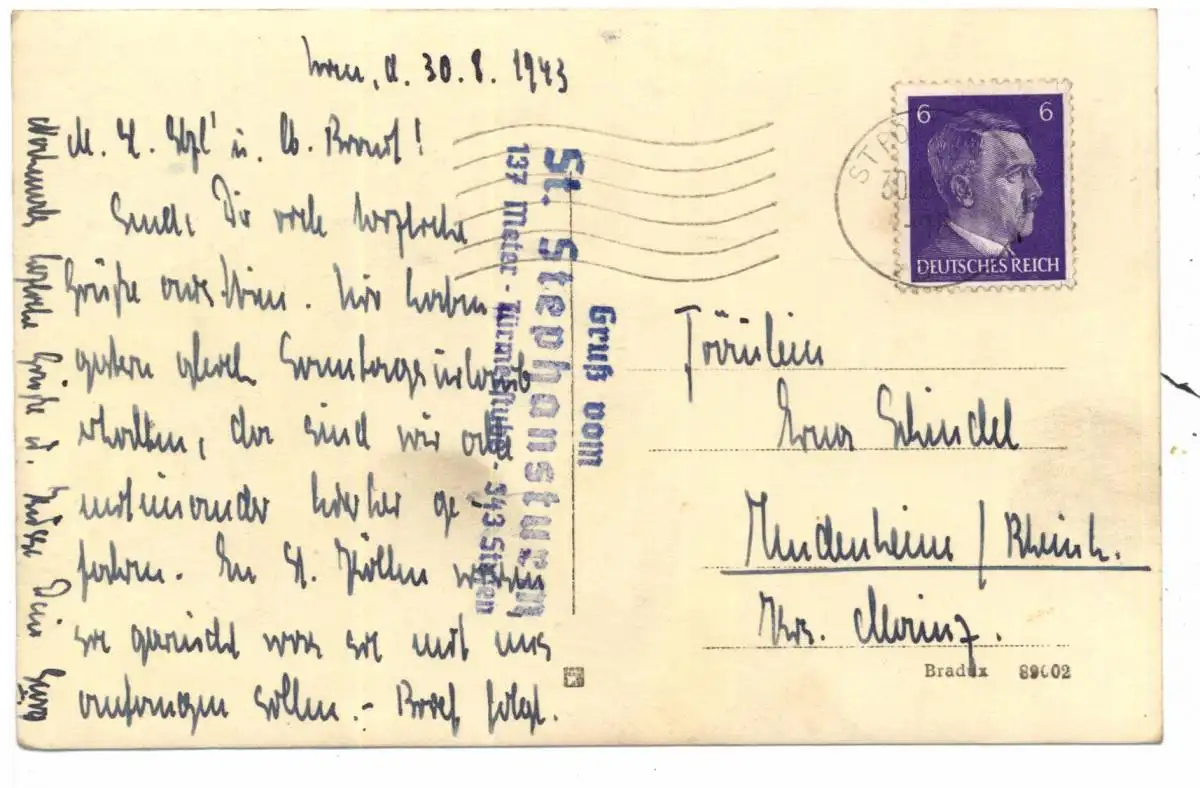 Wien, d. 30.8.1943
M. H. u. lb. Braut!
Send. Dir viele herzliche
Grüße aus Wien. Wir haben
gestern gleich Sonntagsurlaub
erhalten, da sind wir alle
miteinander hierher ge
fahren. In St. Pölten wissen
sie garnicht was sie mit uns
anfangen sollen. - Brief folgt.
Nochmals herzliche Grüße u. Küsse Dein
Gruß vom
St. Stephansturm
137 Meter - Türmerstube - 343 Stufen
6 6
DEUTSCHES REICH
30
Fräulein
Erna Schindel
Undenheim / Rheinh.
Krs. Mainz.
Bradux 89002